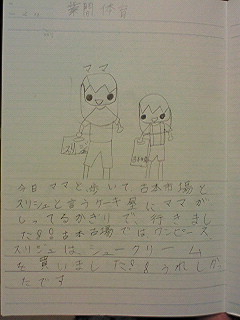 ママ
今日ママと歩いて古本市場と
スリジェと言うケーキ屋にママが
しってるかぎりで、行きまし
た!!古本市場ではワンピース、
スリジェは、シュークリーム
を買いました!!うれしか
たです